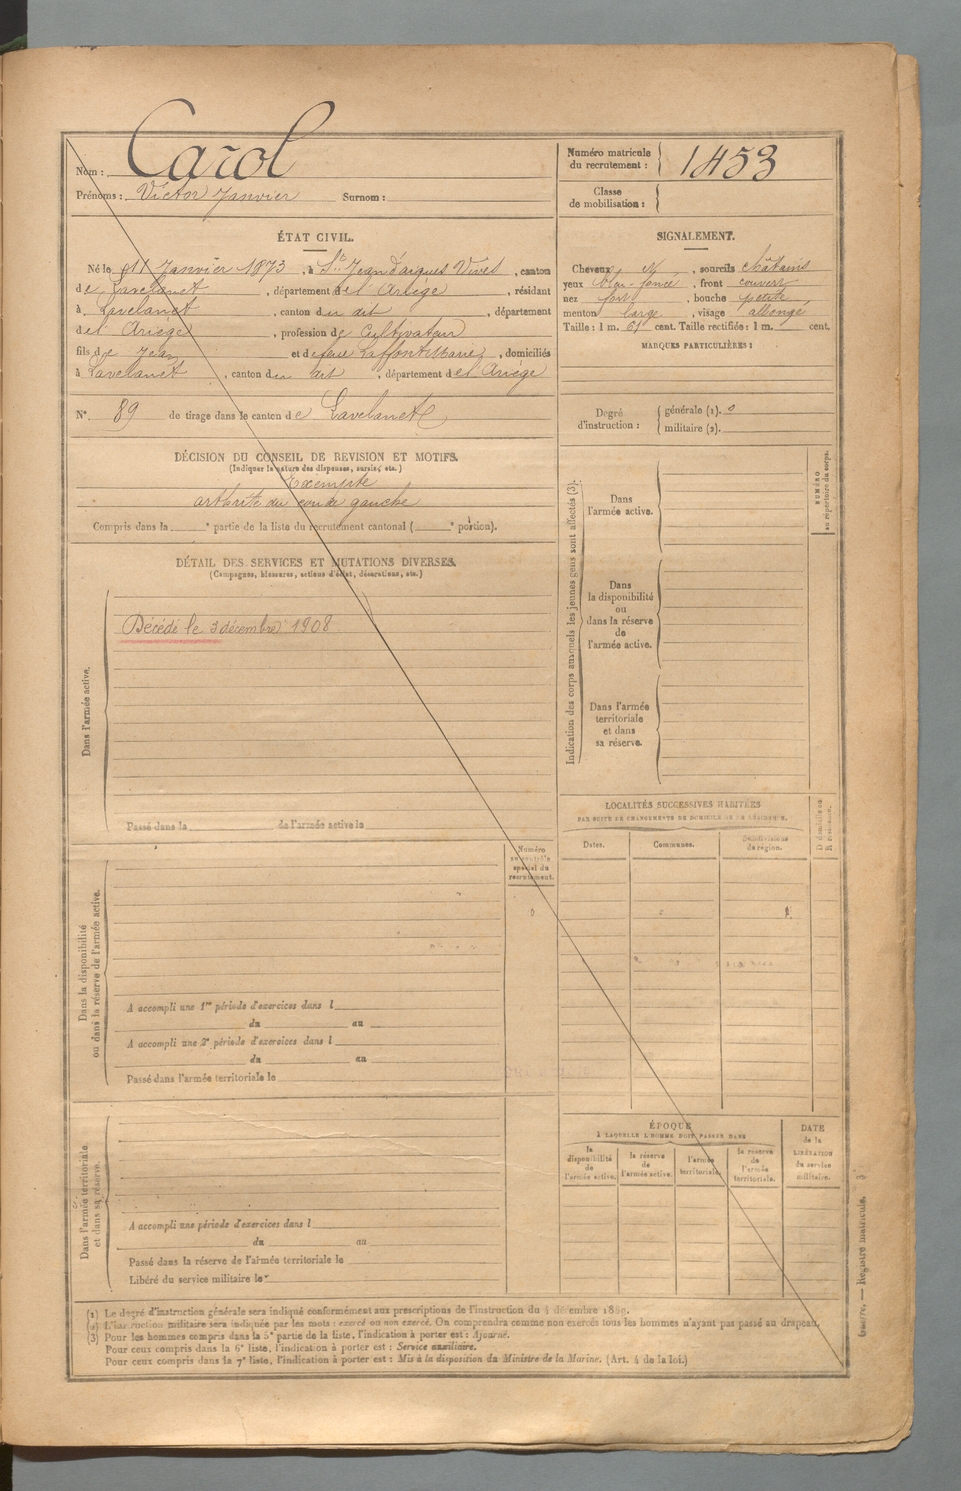 Nom : Carol
Prénoms : Victor Janvier Surnom :
Numéro matricule du recrutement : 1453
Classe de mobilisation :
ÉTAT CIVIL.
Né le 11 Janvier 1873, à St Jean d'aigues Vives, canton
de Lavelanet, département de l'Ariège, résidant
à Lavelanet, canton du dit, département
de l'Ariège, profession de Cultivateur
fils de Jean et de feue Laffont Marie, domiciliés
à Lavelanet, canton du dit, département de l'Ariège
N° 89 de tirage dans le canton de Lavelanet
SIGNALEMENT.
Cheveux, sourcils châtains
yeux foncé, front couvert
nez fort, bouche petite,
menton large, visage allongé
Taille : 1 m. 61 cent. Taille rectifiée : 1 m. cent.
MARQUES PARTICULIÈRES :
Degré d'instruction : générale (1).
militaire (2).
DÉCISION DU CONSEIL DE REVISION ET MOTIFS.
(Indiquer la nature des dispenses, sursis, etc.)
Exempté
arthrite du coude gauche
Compris dans la ° partie de la liste du recrutement cantonal ( ° portion).
DÉTAIL DES SERVICES ET MUTATIONS DIVERSES.
(Campagnes, blessures, actions d'éclat, décorations, etc.)
Dans l'armée active.
Décédé le 3 décembre 1908
Passé dans la de l'armée active le
Indication des corps auxquels les jeunes gens sont affectés (3).
Dans
l'armée active.
Dans
la disponibilité
ou
dans la réserve
de
l'armée active.
Dans l'armée
territoriale
et dans
sa réserve.
NUMÉRO
au répertoire du corps.
LOCALITÉS SUCCESSIVES HABITÉES
PAR SUITE DE CHANGEMENTS DE DOMICILE OU DE RÉSIDENCE.
Dates.
Communes.
Subdivisions
de région.
D domicile ou
R résidence.
Numéro
au contrôle
spécial du
recrutement.
Dans la disponibilité
ou dans la réserve de l'armée active.
A accompli une 1re période d'exercices dans l
du au
A accompli une 2e période d'exercices dans l
du au
Passé dans l'armée territoriale le
Dans l'armée territoriale
et dans sa réserve.
A accompli une période d'exercices dans l
du au
Passé dans la réserve de l'armée territoriale le
Libéré du service militaire le
ÉPOQUE
À LAQUELLE L'HOMME DOIT PASSER DANS
la
disponibilité
de
l'armée active.
la réserve
de
l'armée active.
l'armée
territoriale.
la réserve
de
l'armée
territoriale.
DATE
de la
LIBÉRATION
du service
militaire.
(1) Le degré d'instruction générale sera indiqué conformément aux prescriptions de l'instruction du 4 décembre 1889.
(2) L'instruction militaire sera indiquée par les mots : exercé ou non exercé. On comprendra comme non exercés tous les hommes n'ayant pas passé au drapeau.
(3) Pour les hommes compris dans la 5e partie de la liste, l'indication à porter est : Ajourné.
Pour ceux compris dans la 6e liste, l'indication à porter est : Service auxiliaire.
Pour ceux compris dans la 7e liste, l'indication à porter est : Mis à la disposition du Ministre de la Marine. (Art. 4 de la loi.)
Guerre. — Registre matricule.